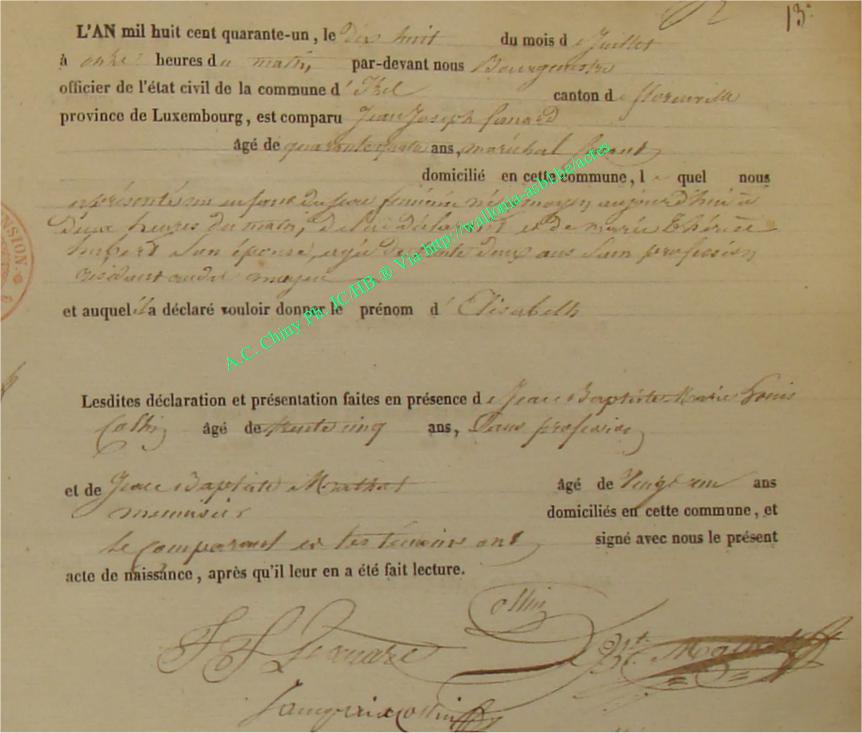 13.
L'AN mil huit cent quarante-un, le dix huit du mois de Juillet
à onze heures du matin, par-devant nous Bourgmestre
officier de l'état civil de la commune d' Izel canton de florenville
province de Luxembourg, est comparu Jean Joseph
âgé de ans, maréchal ferrant
domicilié en cette commune, le quel nous
a présenté un enfant du sexe féminin né aujourd'hui à
deux heures du matin, de lui déclarant et de marie thérèse
son épouse, agée de trente deux ans sans profession
résidant audit
et auquel il a déclaré vouloir donner le prénom d' Elisabeth
Lesdites déclaration et présentation faites en présence de Jean Baptiste Marie Louis
Collin âgé de trente cinq ans, Sans profession
et de Jean Baptiste Mathot âgé de Vingt un ans
menuisier domiciliés en cette commune, et
le comparant et les témoins ont signé avec nous le présent
acte de naissance, après qu'il leur en a été fait lecture.
Collin
A.C. Chiny Ph. JC.HB. ® Via http://wallonia-asbl.be/actes